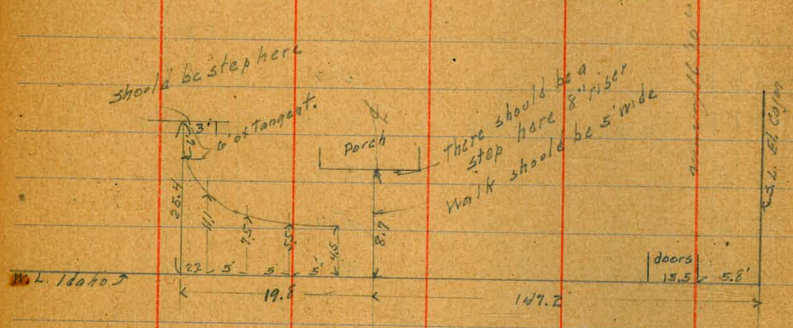 should be step here
3'
6' of tangent.
Porch
There should be a
step here 8" riser
Walk should be 5' wide
25.4
11.1
7.5
5.5
4.5
8.7
22 5' 5' 5'
doors
15.5 5.8'
W. L. Idaho St
19.8
147.2
S. L. El Cajon